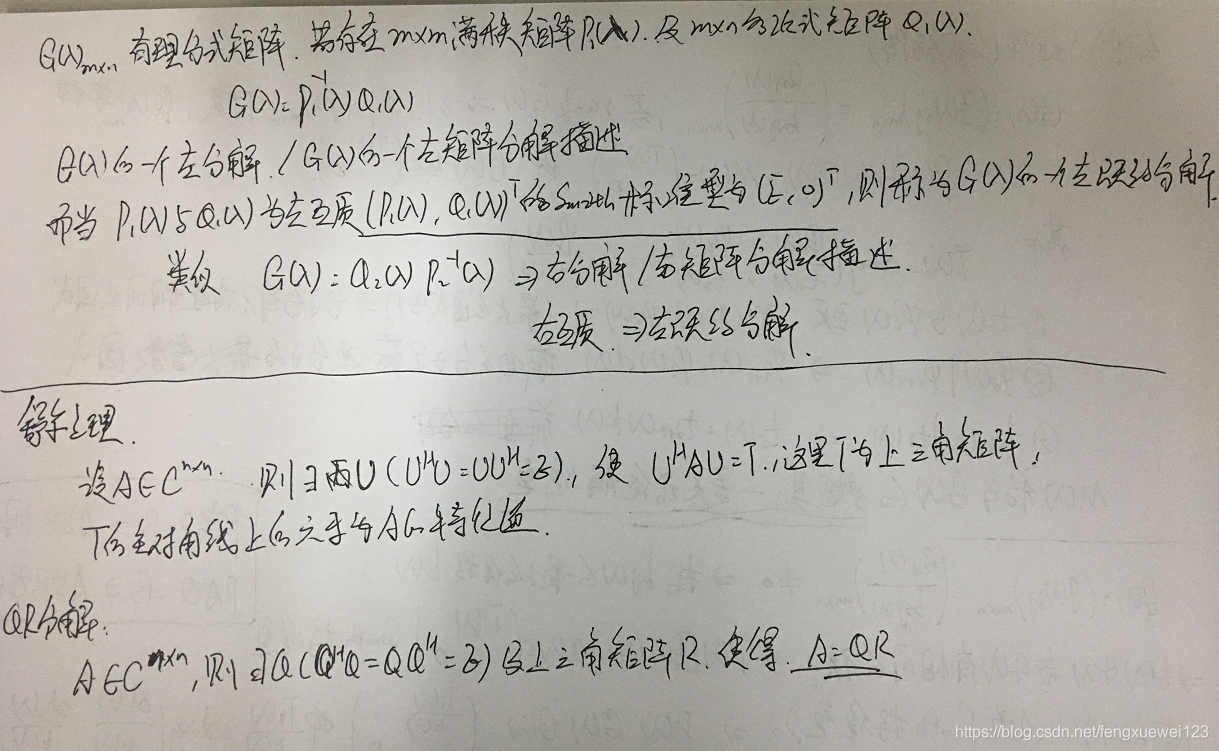 G(λ)m×n 有理分式矩阵. 若存在 m×m 满秩矩阵 P₁(λ). 及 m×n 多项式矩阵 Q₁(λ).
G(λ)=P₁⁻¹(λ)Q₁(λ)
G(λ)的一个左分解. / G(λ)的一个左矩阵分解描述
而当 P₁(λ)与Q₁(λ)为左互质 (P₁(λ), Q₁(λ))ᵀ的Smith标准型为(E, 0)ᵀ, 则称为G(λ)的一个左既约分解.
类似 G(λ)=Q₂(λ)P₂⁻¹(λ) ⇒右分解/右矩阵分解描述.
右互质. ⇒右既约分解.
舒尔定理.
设A∈Cⁿˣⁿ. 则∃酉U(UᴴU=UUᴴ=E), 使 UᴴAU=T. 这里T为上三角矩阵,
T的主对角线上的元素为A的特征值.
QR分解:
A∈Cⁿˣⁿ, 则∃Q(QᴴQ=QQᴴ=E)与上三角矩阵R. 使得. A=QR
https://blog.csdn.net/fengxuewei123